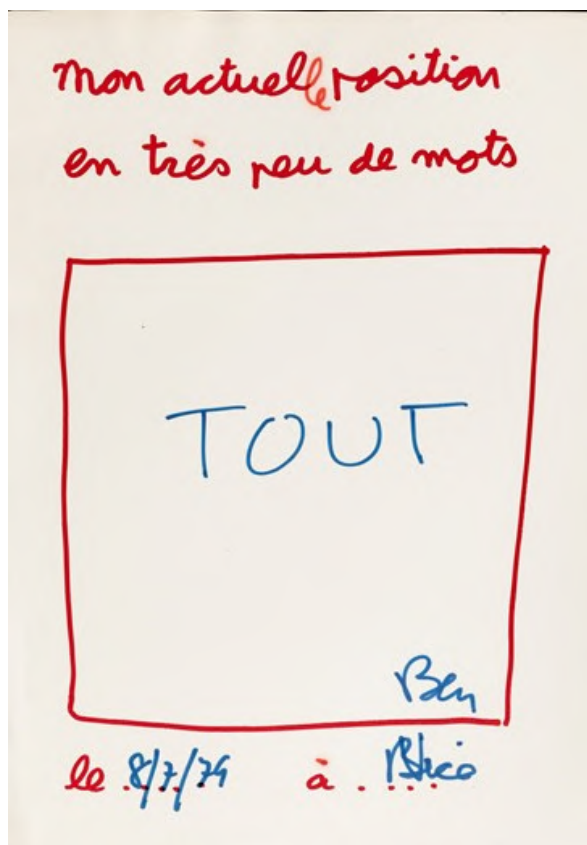 mon actuelle position
en très peu de mots
TOUT
Ben
le 8/7/74 à